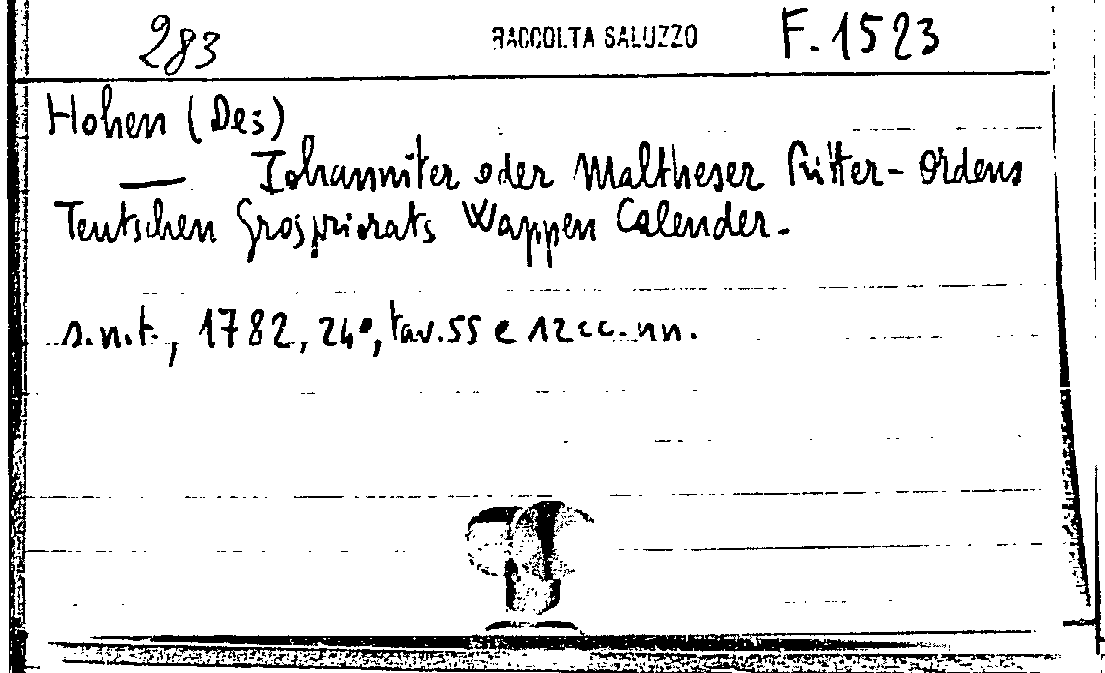 283 RACCOLTA SALUZZO F. 1523
Hohen (Des)
— Iohanniter oder Maltheser Ritter-Ordens
Teutschen Grospriorats Wappen Calender.
s.n.t., 1782, 24°, tav. 55 e 12 cc. nn.